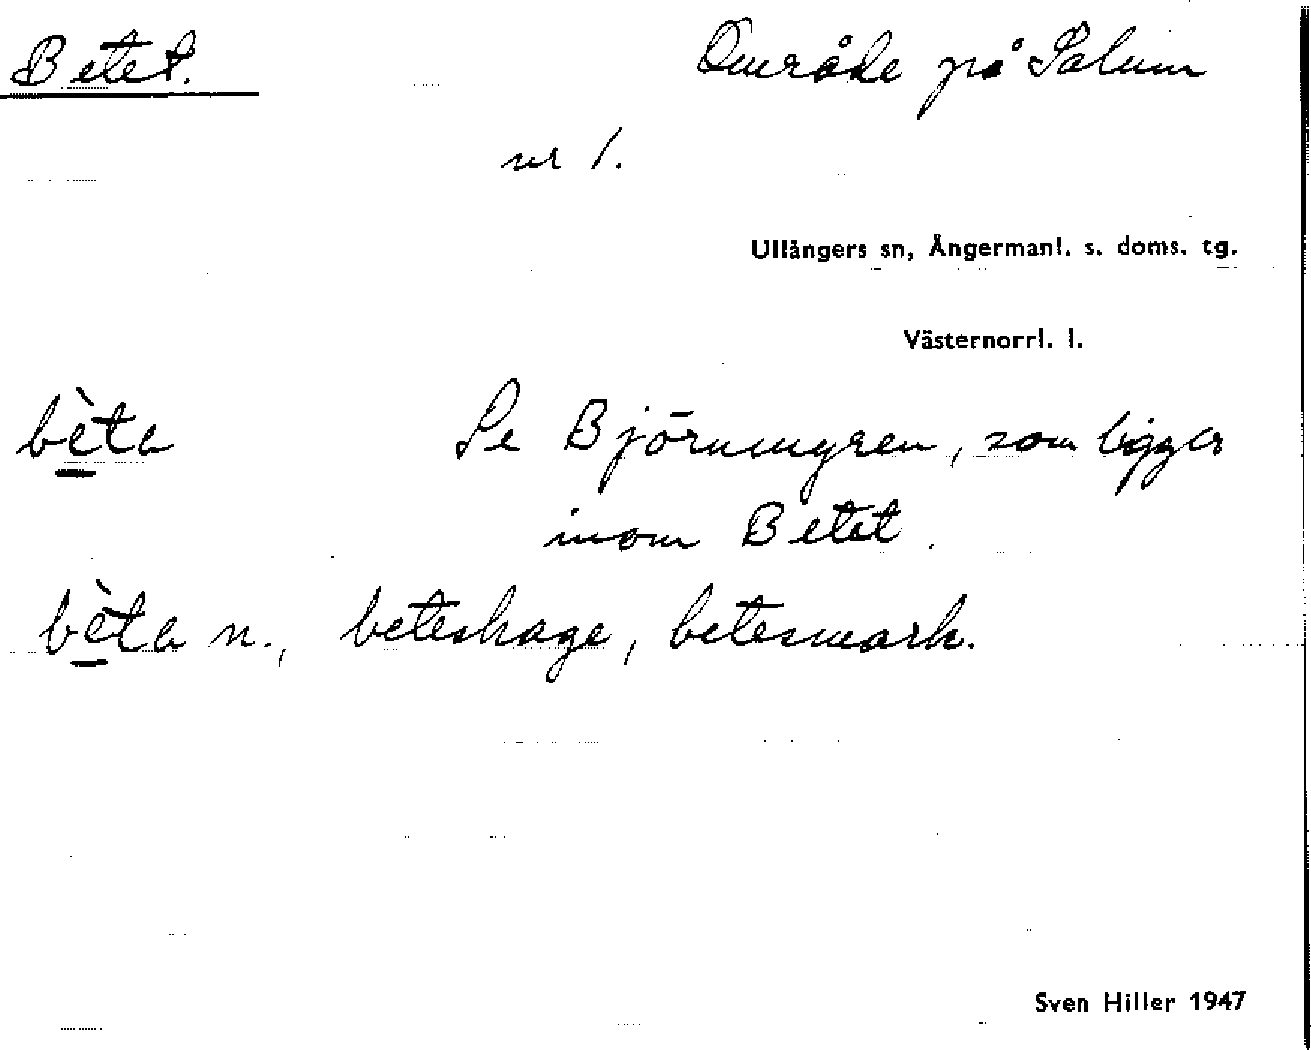 Betet. Område på Salum
nr 1.
Ullångers sn, Ångermanl. s. doms. tg.
Västernorrl. l.
bèta Se Björnmyren, som ligger
inom Betet.
bèta n., beteshage, betesmark.
Sven Hiller 1947